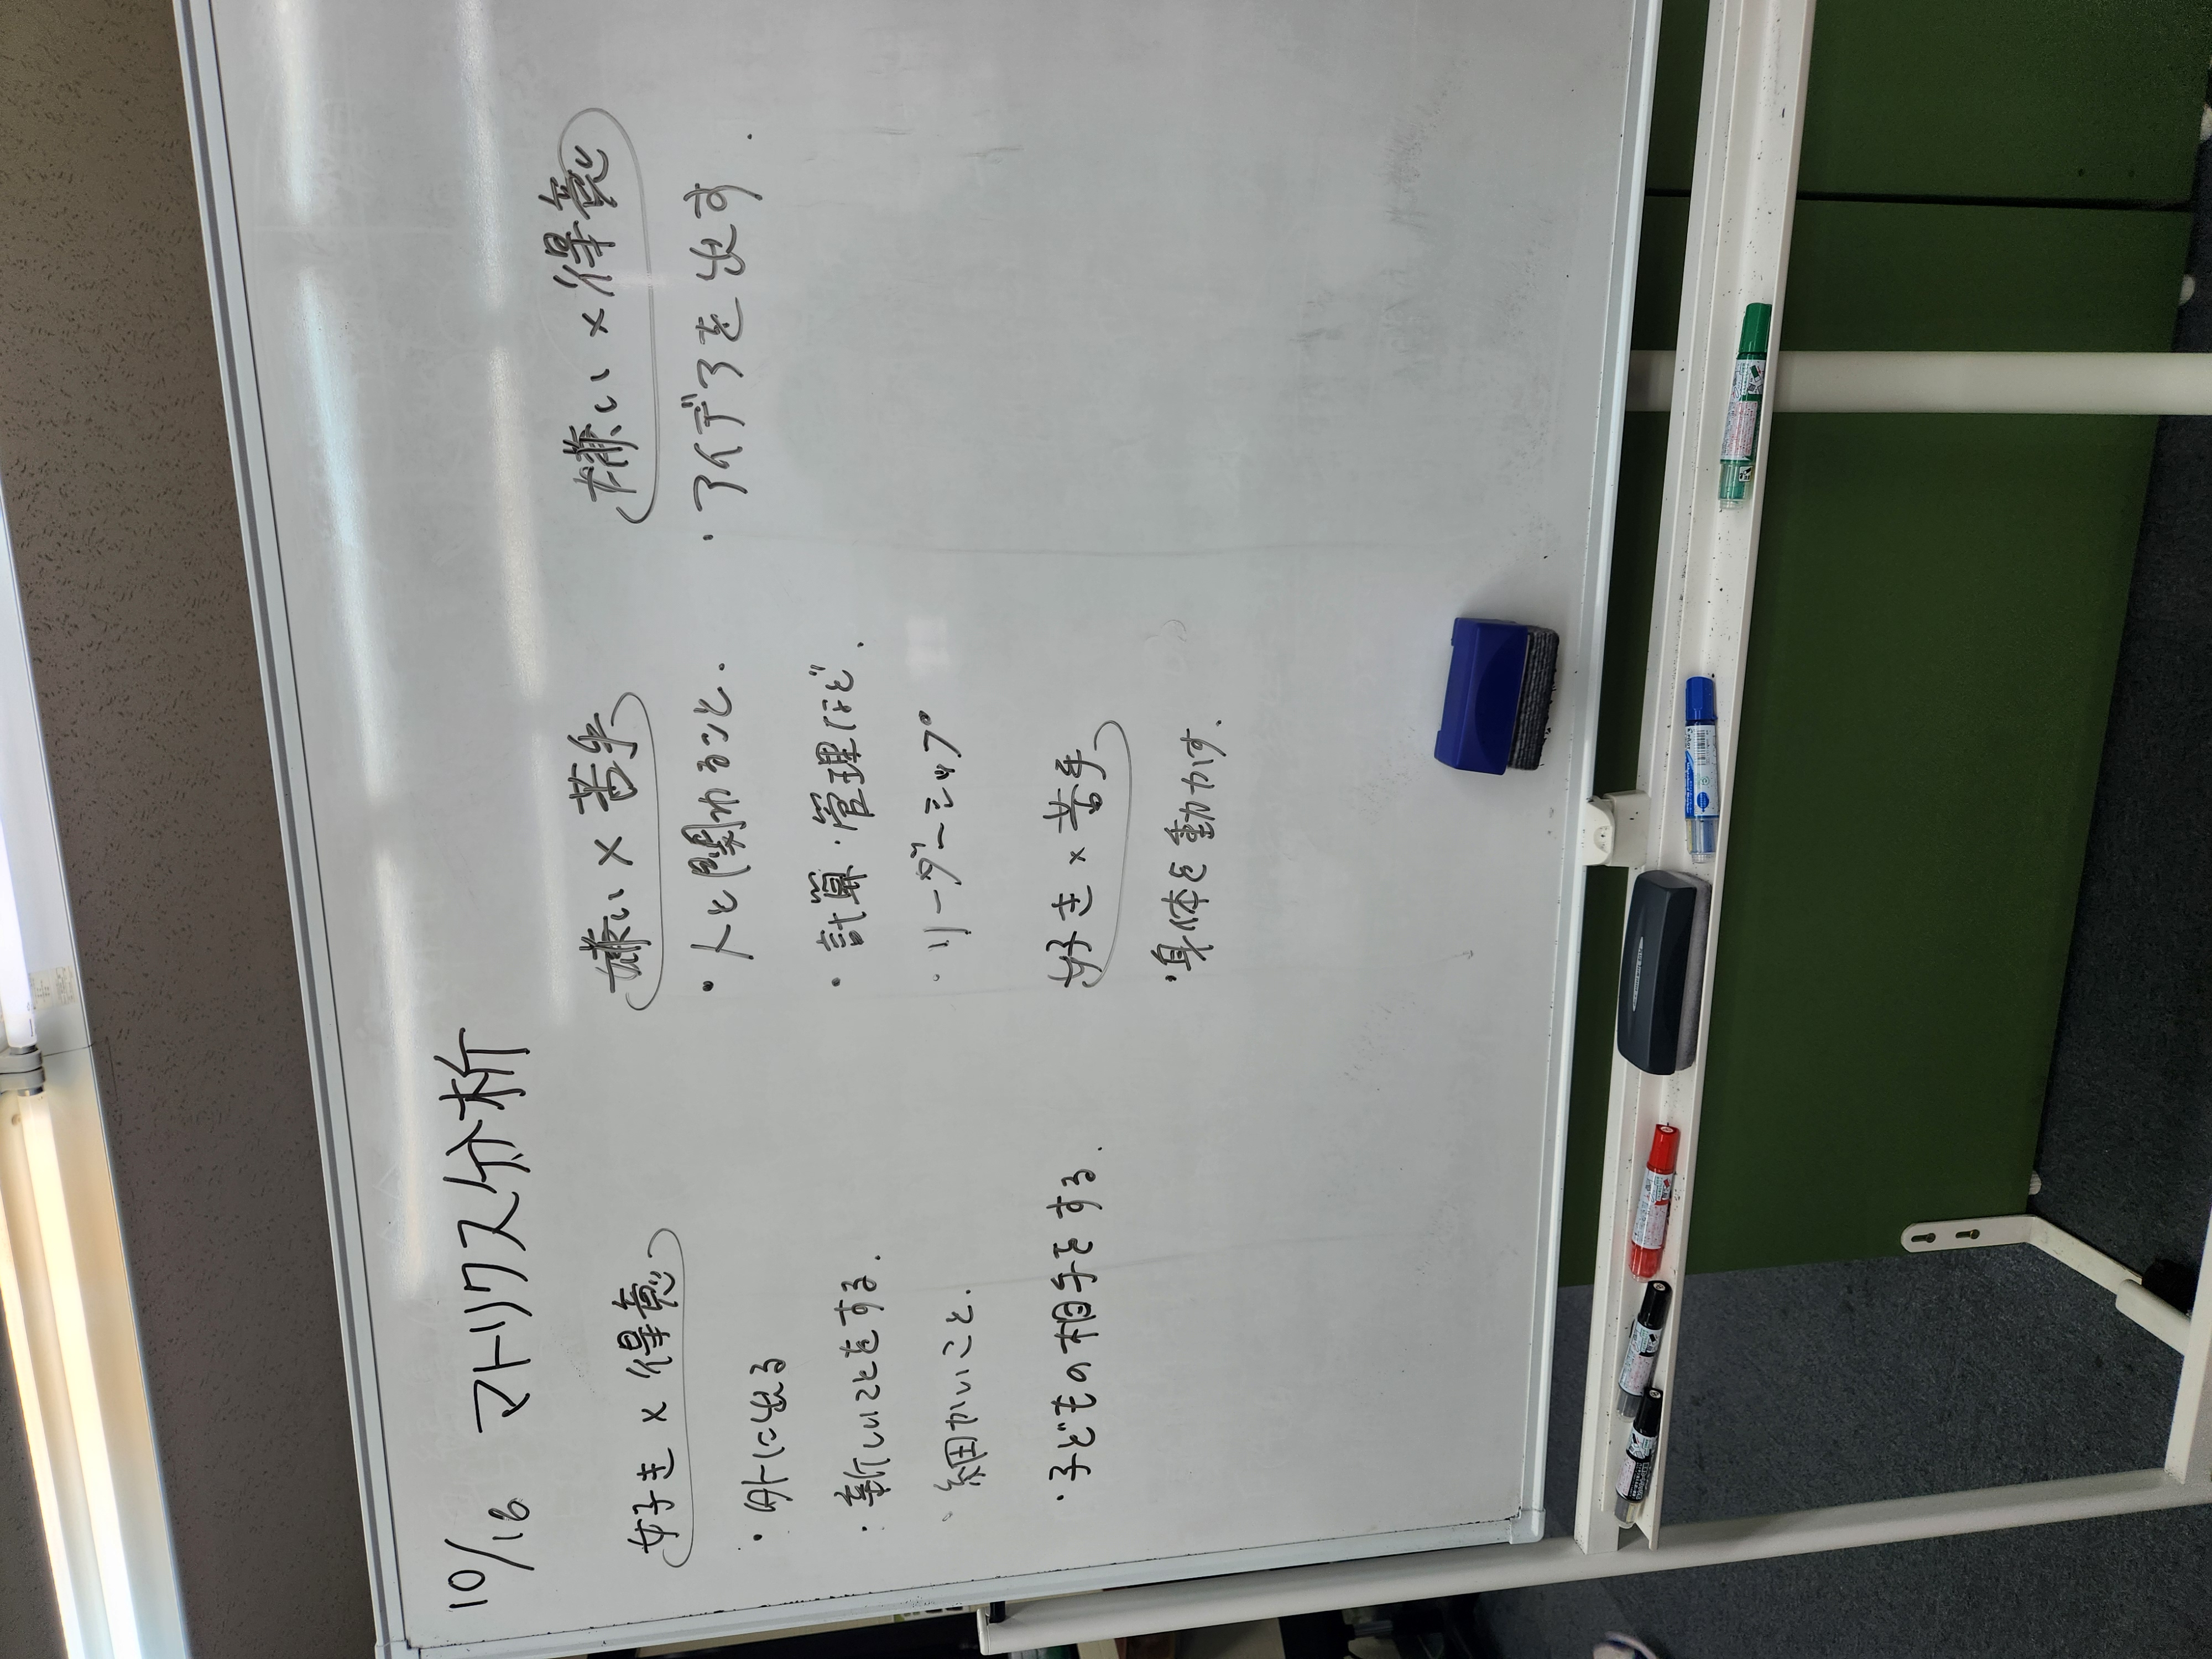 10/16 マトリクス分析
好き × 得意
・外に出る
・新しいことをする.
・細かいこと.
・子どもの相手をする.
嫌い × 苦手
・人と関わること.
・計算・管理など.
・リーダーシップ
好き × 苦手
・身体を動かす.
嫌い × 得意
・アイデアを出す.